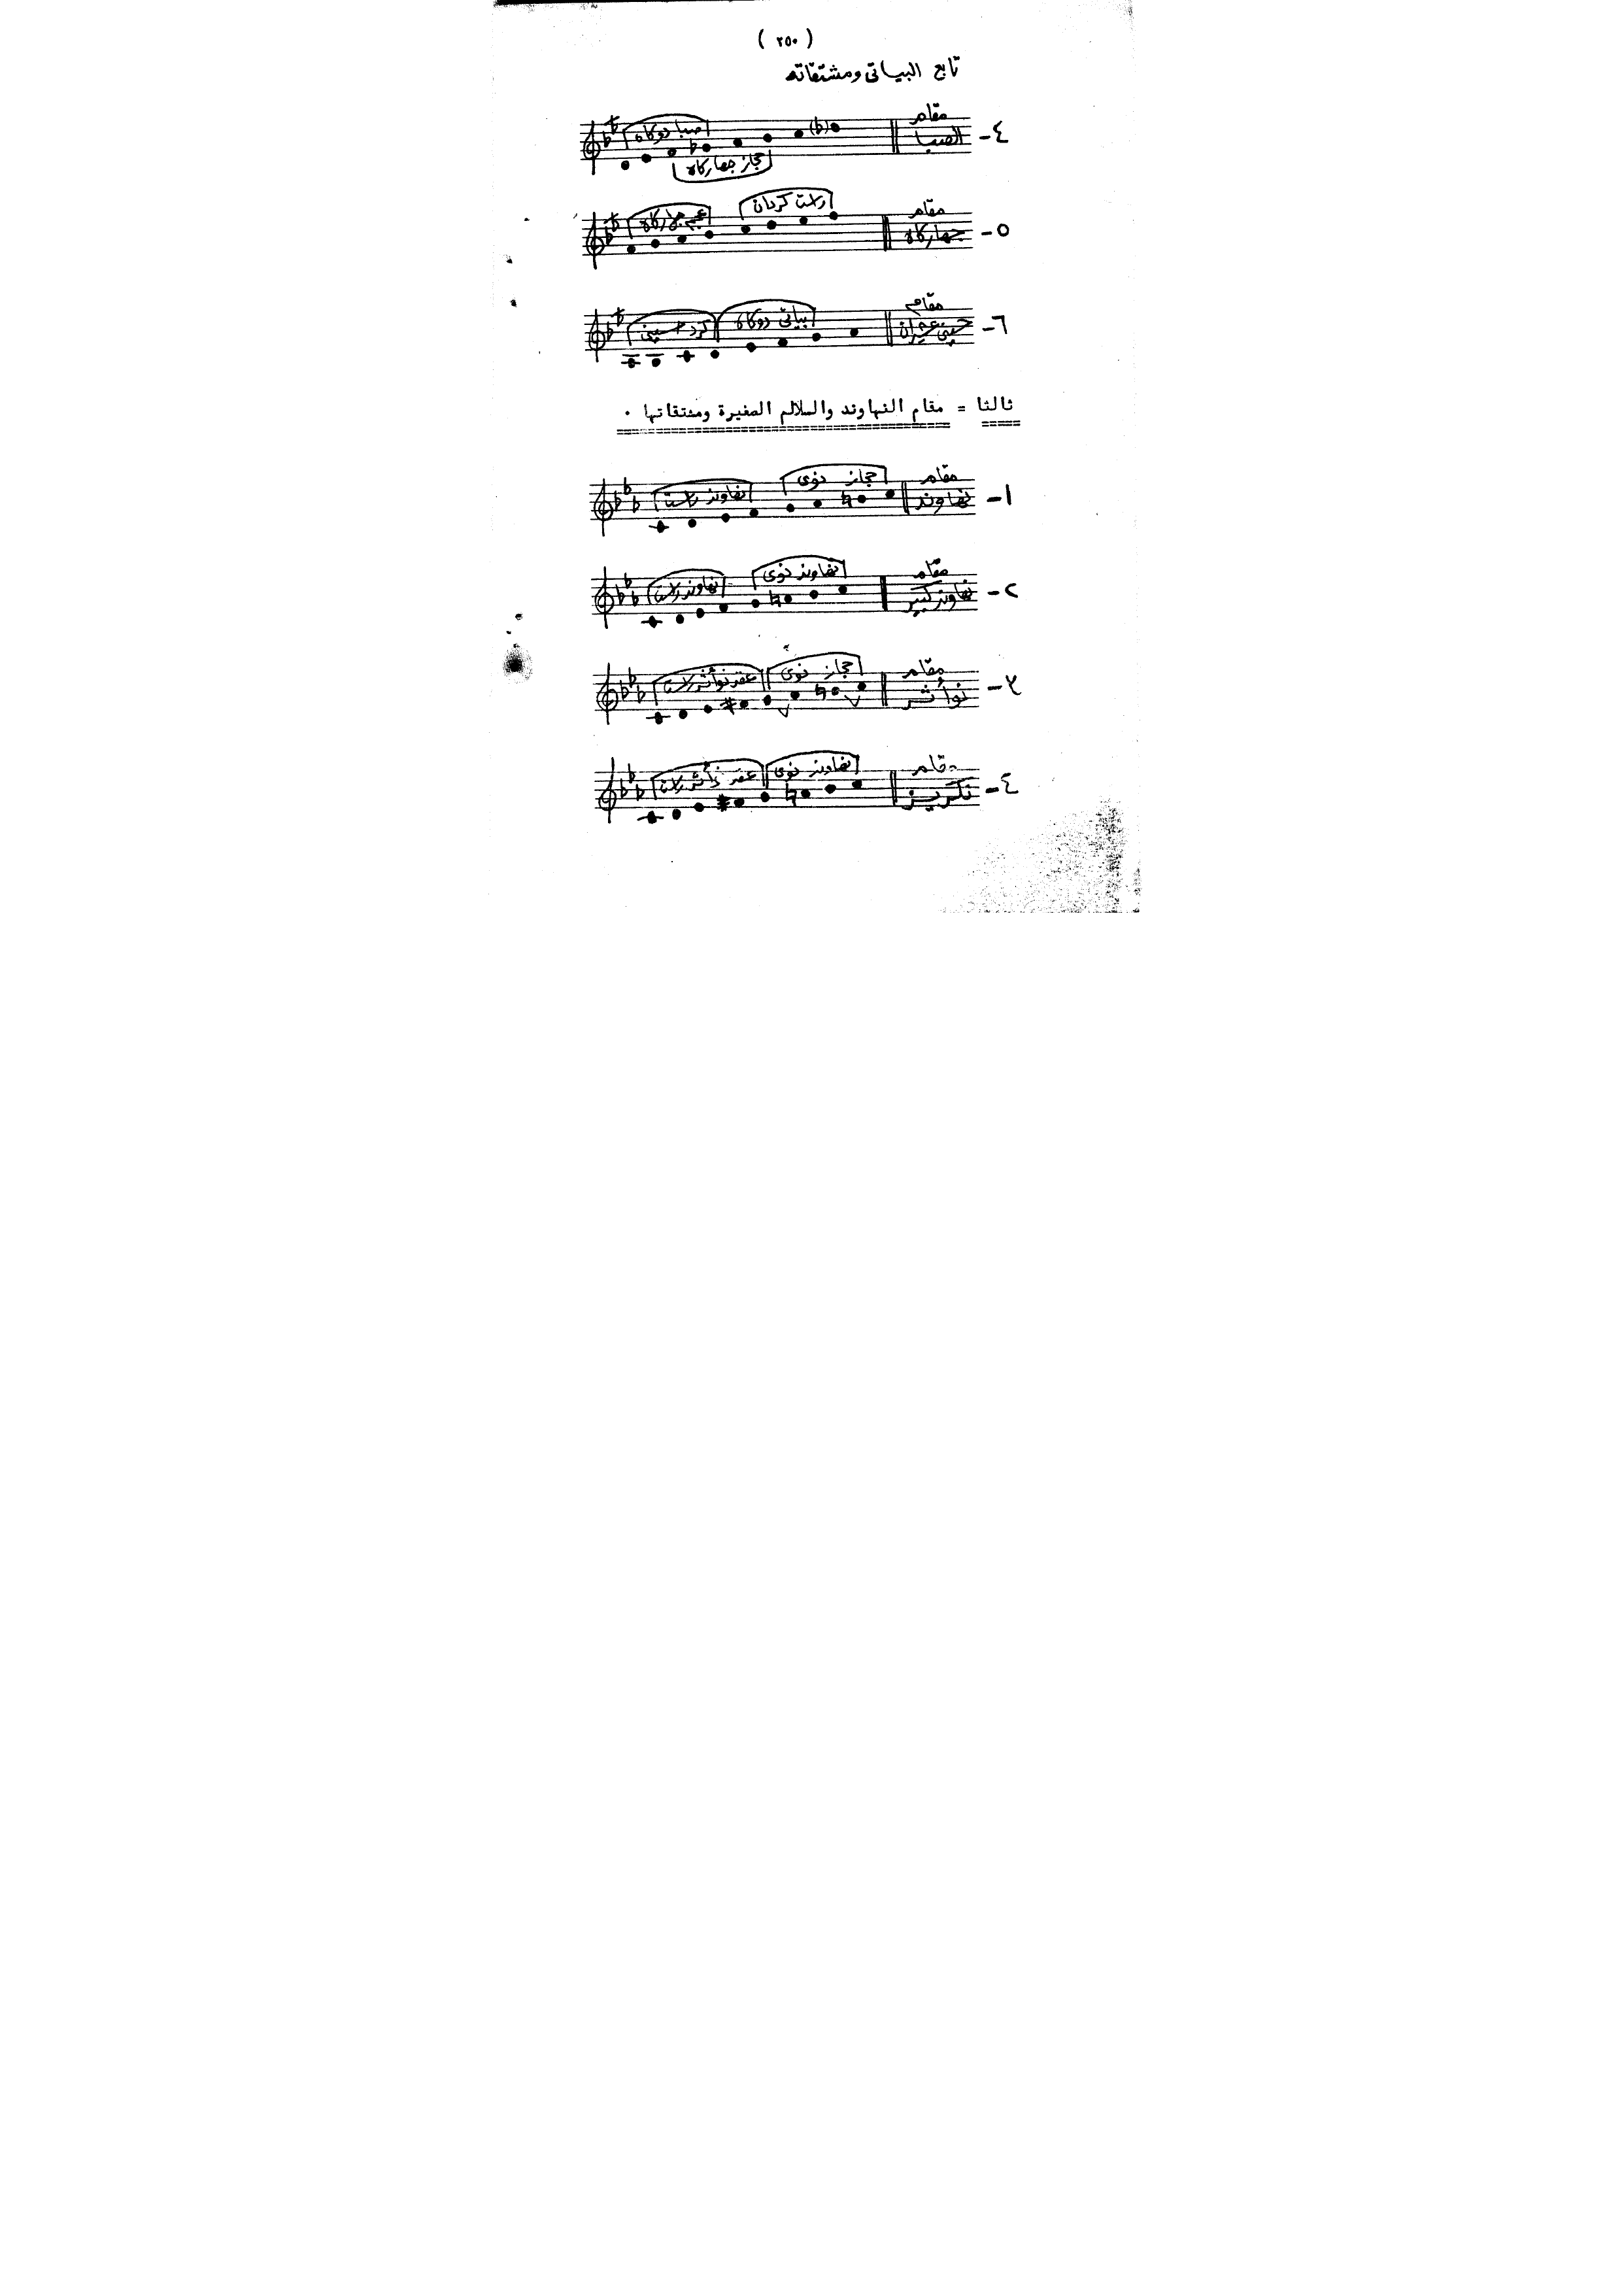 ( ٢٥٠ )
تابع البياتى ومشتقاته
٤- مقام الصبا
صبا دوكاه
حجاز جهاركاه
٥- مقام جهاركاه
عجم جهاركاه
راست كردان
٦- مقام حسينى عشيران
كرد حسينى
بياتى دوكاه
ثالثا = مقام النهاوند والسلالم الصغيرة ومشتقاتها ٠
١- مقام نهاوند
نهاوند راست
حجاز نوى
٢- مقام نهاوند كبير
نهاوند راست
نهاوند نوى
٣- مقام نوأثر
عقد نوأثر راست
حجاز نوى
٤- مقام نكريز
عقد نوأثر راست
نهاوند نوى